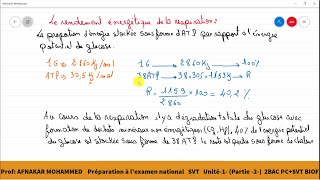 Le rendement énergétique de la respiration:
La proportion d'énergie stockée sous forme d'ATP par rapport à l'énergie
potentiel du glucose.
1G = 2860 Kj/mol
1G → 2860Kj → 100%
ATP = 30,5 Kj/mol
38ATP → 38.30,5=1159Kj → R
R = 1159/2860 x100 = 40,2 %
Au cours de la respiration il y a dégradation totale du glucose avec
formation de déchets minéraux non énergétiques (CO2, H2O), 40% de l'énergie potentiel
du glucose est stockée sous forme de l'ATP le reste est perdu sous forme de chaleur
Prof: AFNAKAR MOHAMMED Préparation à l'examen national SVT Unité-1- (Partie -2-) 2BAC PC+SVT BIOF